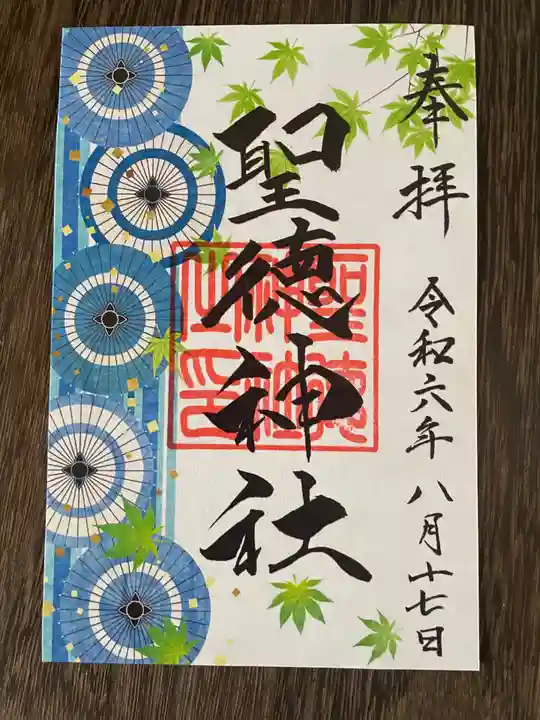 奉拝
令和六年八月十七日
聖徳神社
聖徳
神社
之印